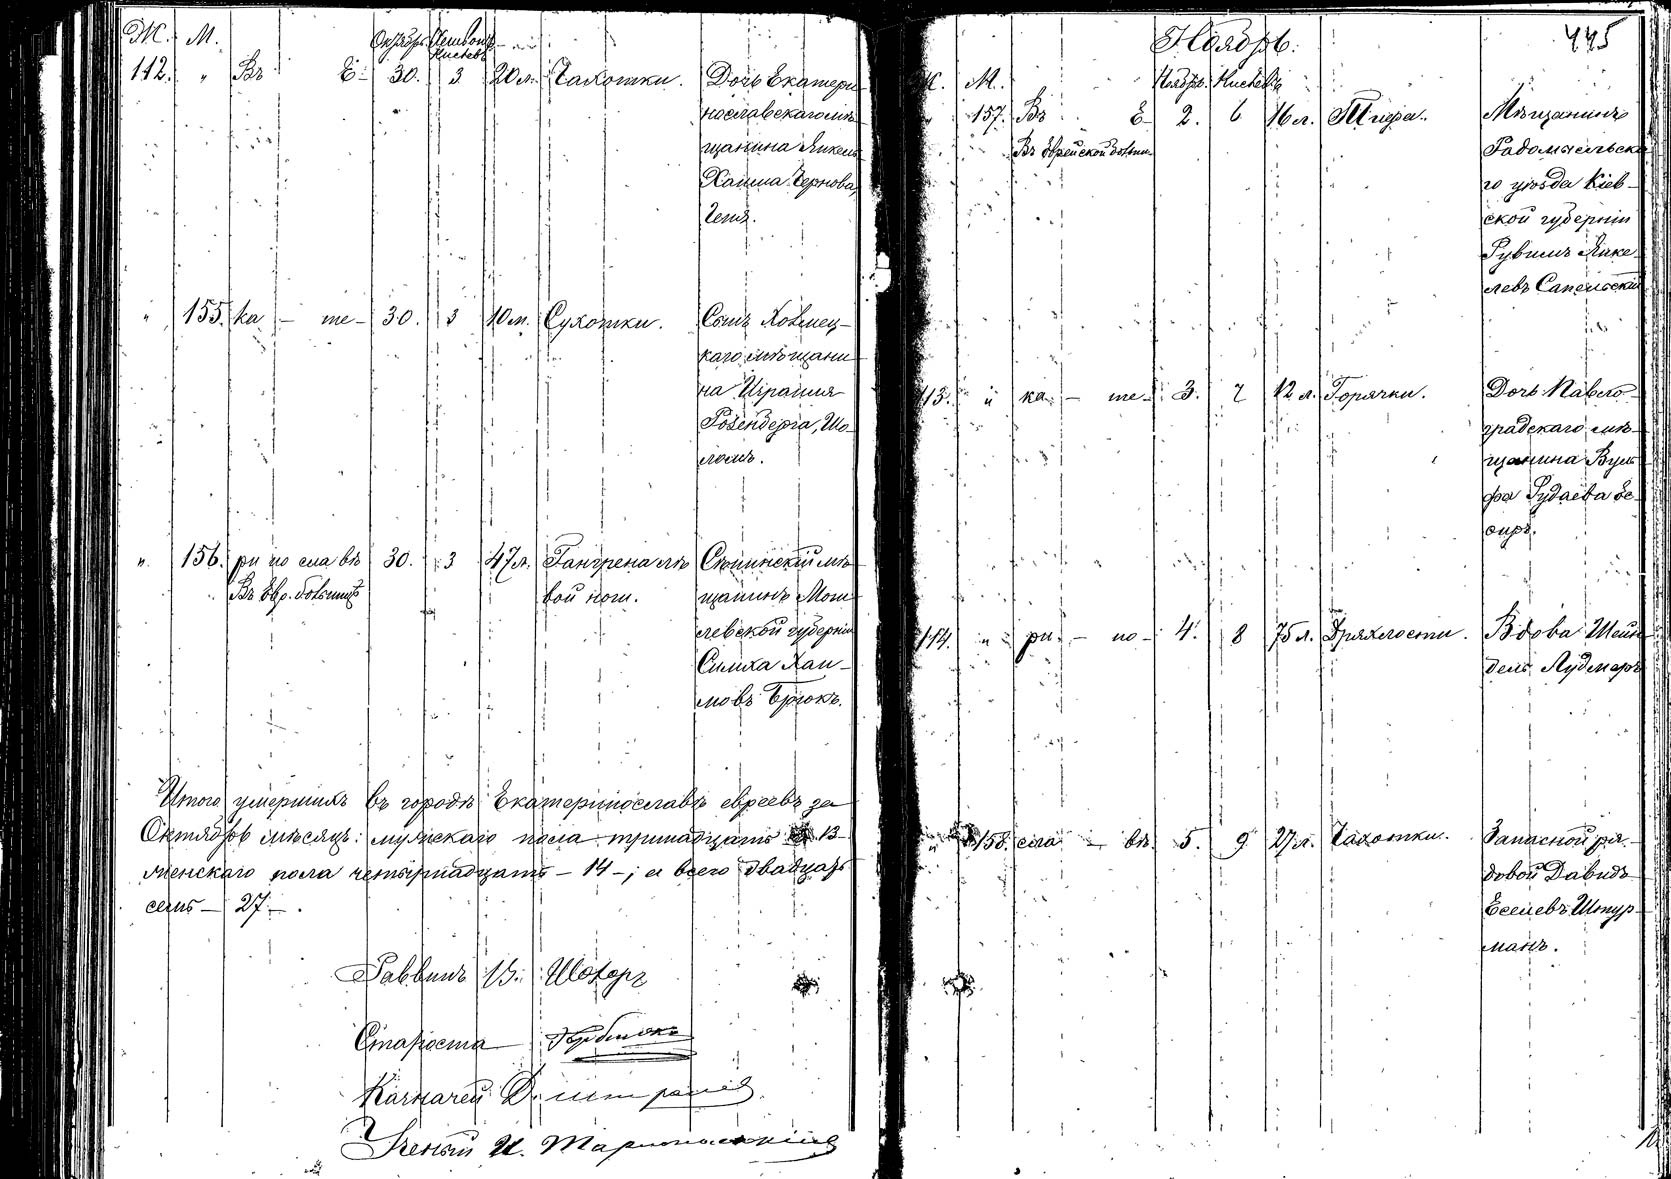 Ж. М. Октябрь Хешвонъ Кислевъ
112. " Въ Е- 30. 3 20 л. Чахотки. Дочь Екатери-
нославскаго мѣ-
щанина Янкель
Хаима Чернова,
Геня.
" 155. ка - те- 30. 3 10 м. Сухотки. Сынъ
каго мѣщани
на Израиля
Розенберга, Шо-
ломъ.
" 156. ри но славѣ 30. 3 47 л. Гангрена лѣ-
Въ Евр. больницѣ вой ноги. щанинъ Моги
левской губерніи
Симха Хаи-
мовъ Брюкъ.
Итого умершихъ въ городѣ Екатеринославѣ евреевъ за
Октябрь мѣсяцъ: мужскаго пола тринадцать 13-
женскаго пола четырнадцать - 14 -; а всего двадцать
семь - 27 -.
Раввинъ В. Шохоръ
Староста
Казначей
Ученый И.
Ноябрь. 445
Ж. М. Ноябрь. Кислевъ
" 157. Въ Е- 2. 6 16 л. Тифа. Мѣщанинъ
Въ Еврейской больн. Радомысльска
го уѣзда Кіев-
ской губерніи
Рувимъ Янке-
левъ
113. " ка - те- 3. 7 12 л. Горячки. Дочь Павло-
градскаго мѣ-
щанина Вуль
фа Рудаева Ес-
сиръ.
114. " ри - но- 4. 8 75 л. Дряхлости. Вдова Шейн-
дель Лудмеръ
" 158. сла - вѣ. 5. 9 27 л. Чахотки. Запасной ря-
довой Давидъ
Еселевъ Штур-
манъ.